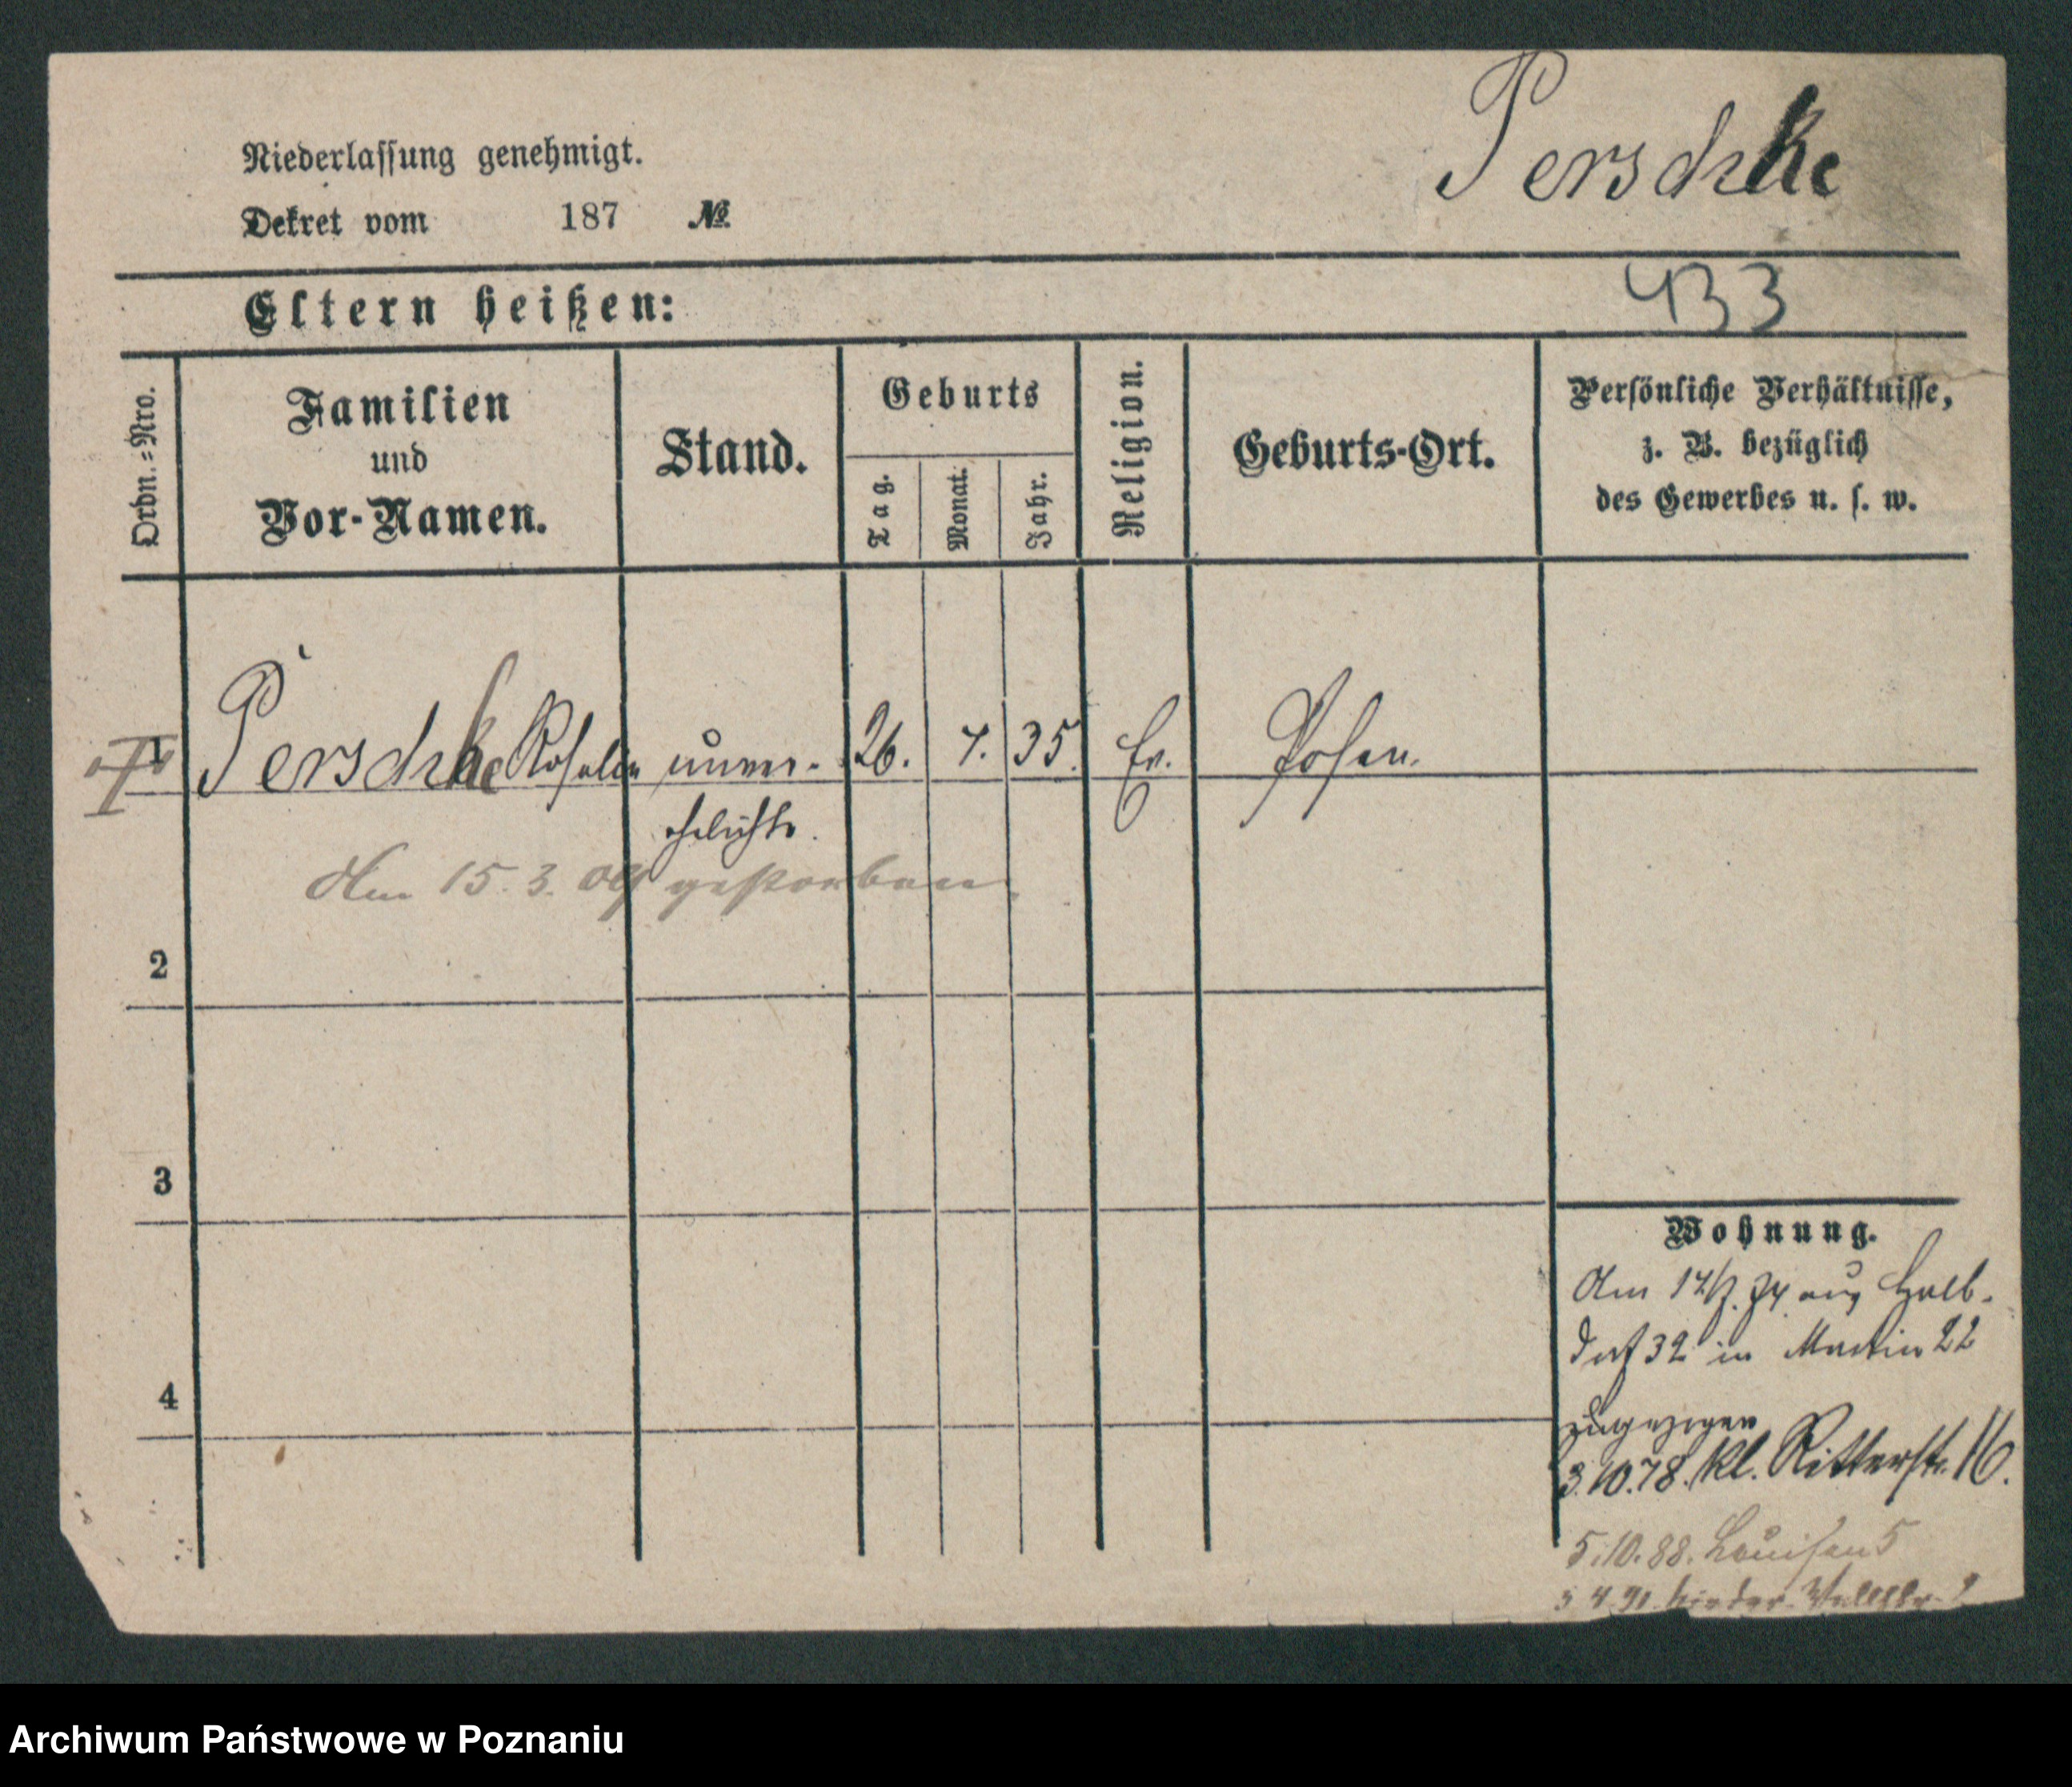 Perschke
Niederlassung genehmigt.
Dekret vom 187 №
433
Eltern heißen:
Ordn.=Nro.
Familien
und
Vor-Namen.
Stand.
Geburts
Tag.
Monat.
Jahr.
Religion.
Geburts-Ort.
Persönliche Verhältnisse,
z. B. bezüglich
des Gewerbes u. s. w.
1 Perschke Rosalie unver- 26. 7. 35. Ev. Posen.
ehelicht.
Am 15. 3. 04 gestorben.
2
3
4
Wohnung.
Am 74 aus Halb-
dorf 32 in Martin 22
zugezogen
3.10.78. kl. Ritterstr. 16.
5.10.88. Louisen 5
Nieder Wallstr.
Archiwum Państwowe w Poznaniu